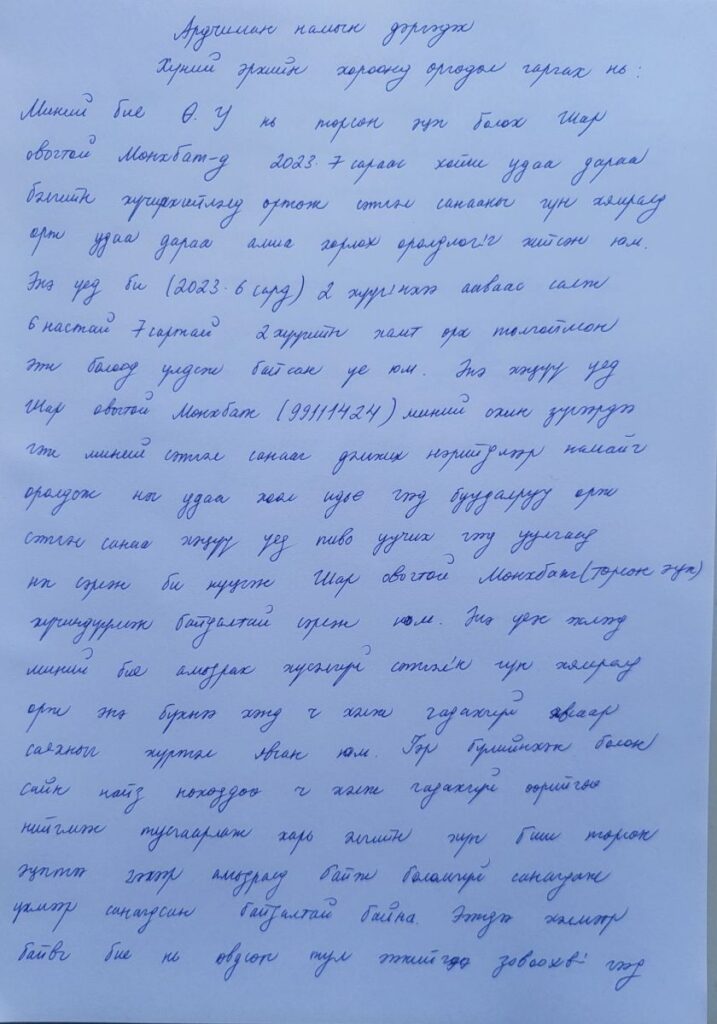 Ардчилсан намын дэргэдэх
Хүний эрхийн хороонд өргөдөл гаргах нь:
Миний бие Ө. У нь төрсөн эцэг болох Шар
овогтой Мөнхбат-д 2023. 7 сараас хойш удаа дараа
бэлгийн хүчирхийлэлд өртөж сэтгэл санааны гүн хямралд
орж удаа дараа амиа хорлох оролдлого хийсэн юм.
Энэ үед би (2023. 6 сард) 2 хүүгийнхээ ааваас салж
6 настай 7 сартай 2 хүүгийн хамт өрх толгойлсон
ээж болоод үлдсэн байсан үе юм. Энэ хэцүү үед
Шар овогтой Мөнхбат (99111424) миний охин зүгээрдээ
гэж миний сэтгэл санааг дэмжих нэрийдлээр намайг
оролдож нэг удаа хоол идье гэд буудалруу орж
сэтгэл санаа хэцүү үед пиво уучих гэд уулгаад
нэг сэрэхэд би нүцгэн Шар овогтой Мөнхбат (төрсөн эцэг)
хүчиндүүлсэн байдалтай сэрсэн юм. Энэ үеэс эхлээд
миний бие амьдрах хүсэлгүй сэтгэлийн гүн хямралд
орж энэ бүхнээ хэнд ч хэлж чадахгүй явсаар
саяхныг хүртэл явсан юм. Гэр бүлийнхэн болон
сайн найз нөхөддөө ч хэлж чадахгүй өөрийгөө
нийгмээс тусгаарлаж харь элгийн хүн биш төрсөн
эцэгтээ гэхээр амьдралд байж боломгүй санагдаж
үхмээр санагдсан байдалтай байна. Ээждээ хэлмээр
байвч бие нь өвдсөн тул ээжийгээ зовоохгүй гэд